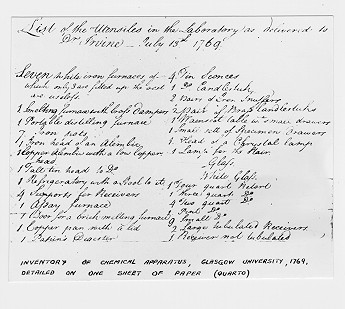 List of the Utensiles in the laboratory as delivered to
Dr Irvine July 13th 1769
Seven white iron furnaces of
which only 3 are fitted up the rest
are useless
1 Smelting furnace with
1 Portable distilling furnace
7 Iron pots
1 Iron head of an Alembic
1 Copper Alembic with a low Copper
head
1 Tall tin head to Do
1 Refrigeratory with a Stool to it
Supports for Receivers
1 Assay furnace
1 Door for a brick melting furnace
1 Copper pan with a lid
1 Papin's Digester
4 Tin Sconces
1 Do Candlestick
2 Pairs of Iron Snuffers
2 Pair of Candlesticks
1 Wainscot table with drawers
1 Small of Specimen Drawers
Head of a Chrystal Lamp
1 Lamp for the Stair
Glass
White Glass
1 Four quart Retort
1 Three quart Do
4 Two quart Do
Pint Do
9 Small Do
2 Large tubulated Receivers
1 Receiver not tubulated
INVENTORY OF CHEMICAL APPARATUS, GLASGOW UNIVERSITY, 1769,
DETAILED ON ONE SHEET OF PAPER (QUARTO)